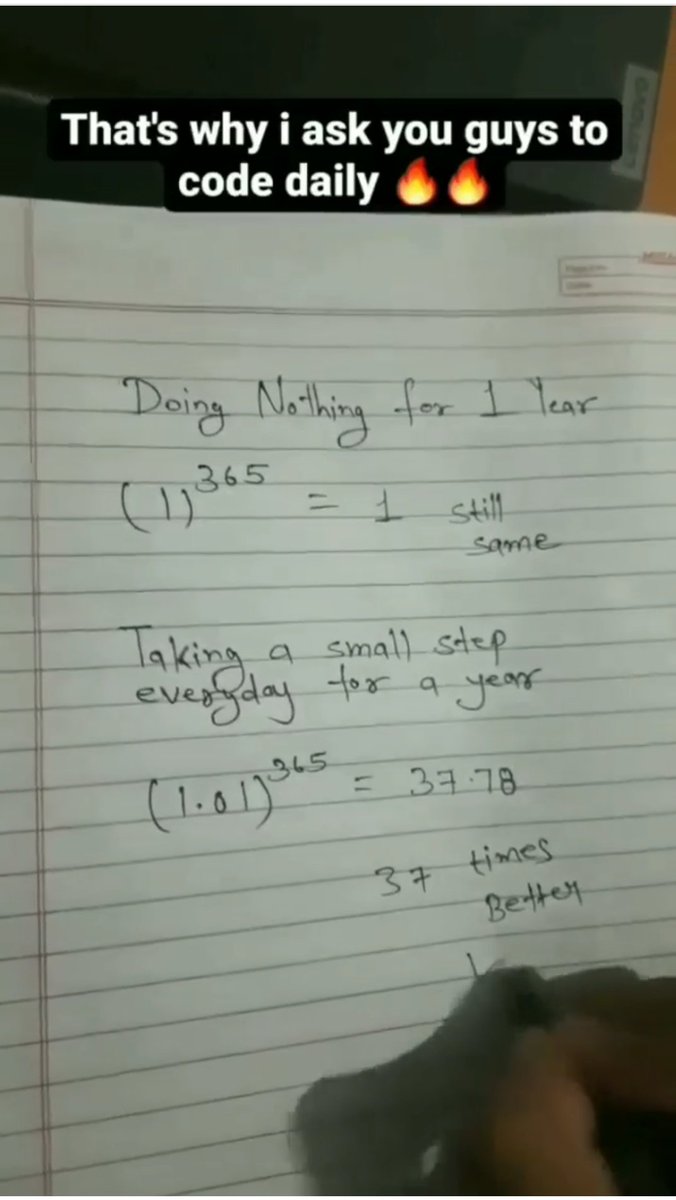 That's why i ask you guys to
code daily 🔥🔥
lenovo
Doing Nothing for 1 Year
(1)^365 = 1 still
same
Taking a small step
everyday for a year
(1.01)^365 = 37.78
37 times
Better